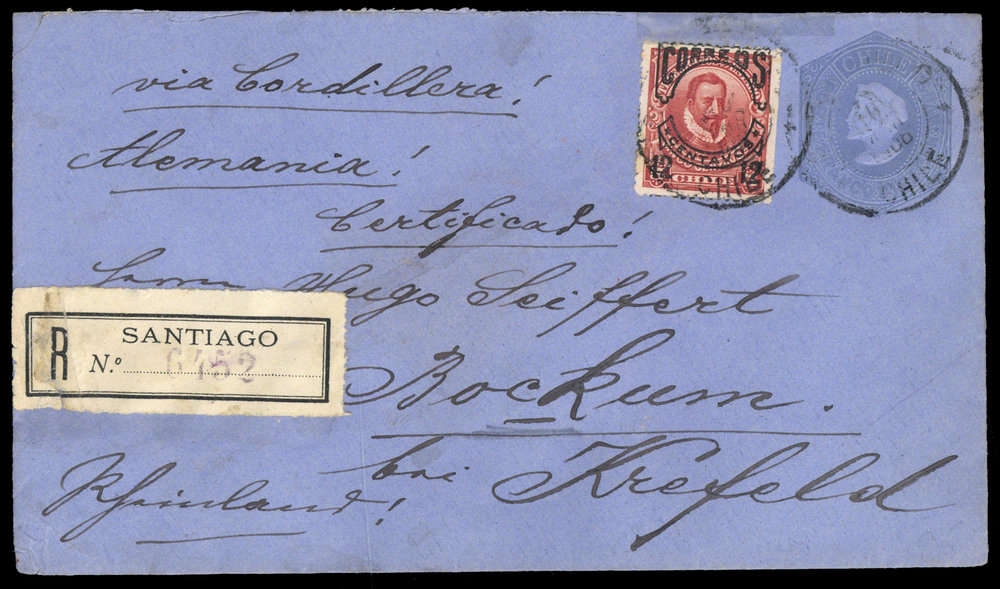 via Cordillera!
Alemania!
Certificado!
Hugo Seiffert
Bockum.
bei Krefeld
Rheinland!
R
SANTIAGO
N.º 6452
CORREOS
CENTAVOS
12 12
CHILE
CHILE